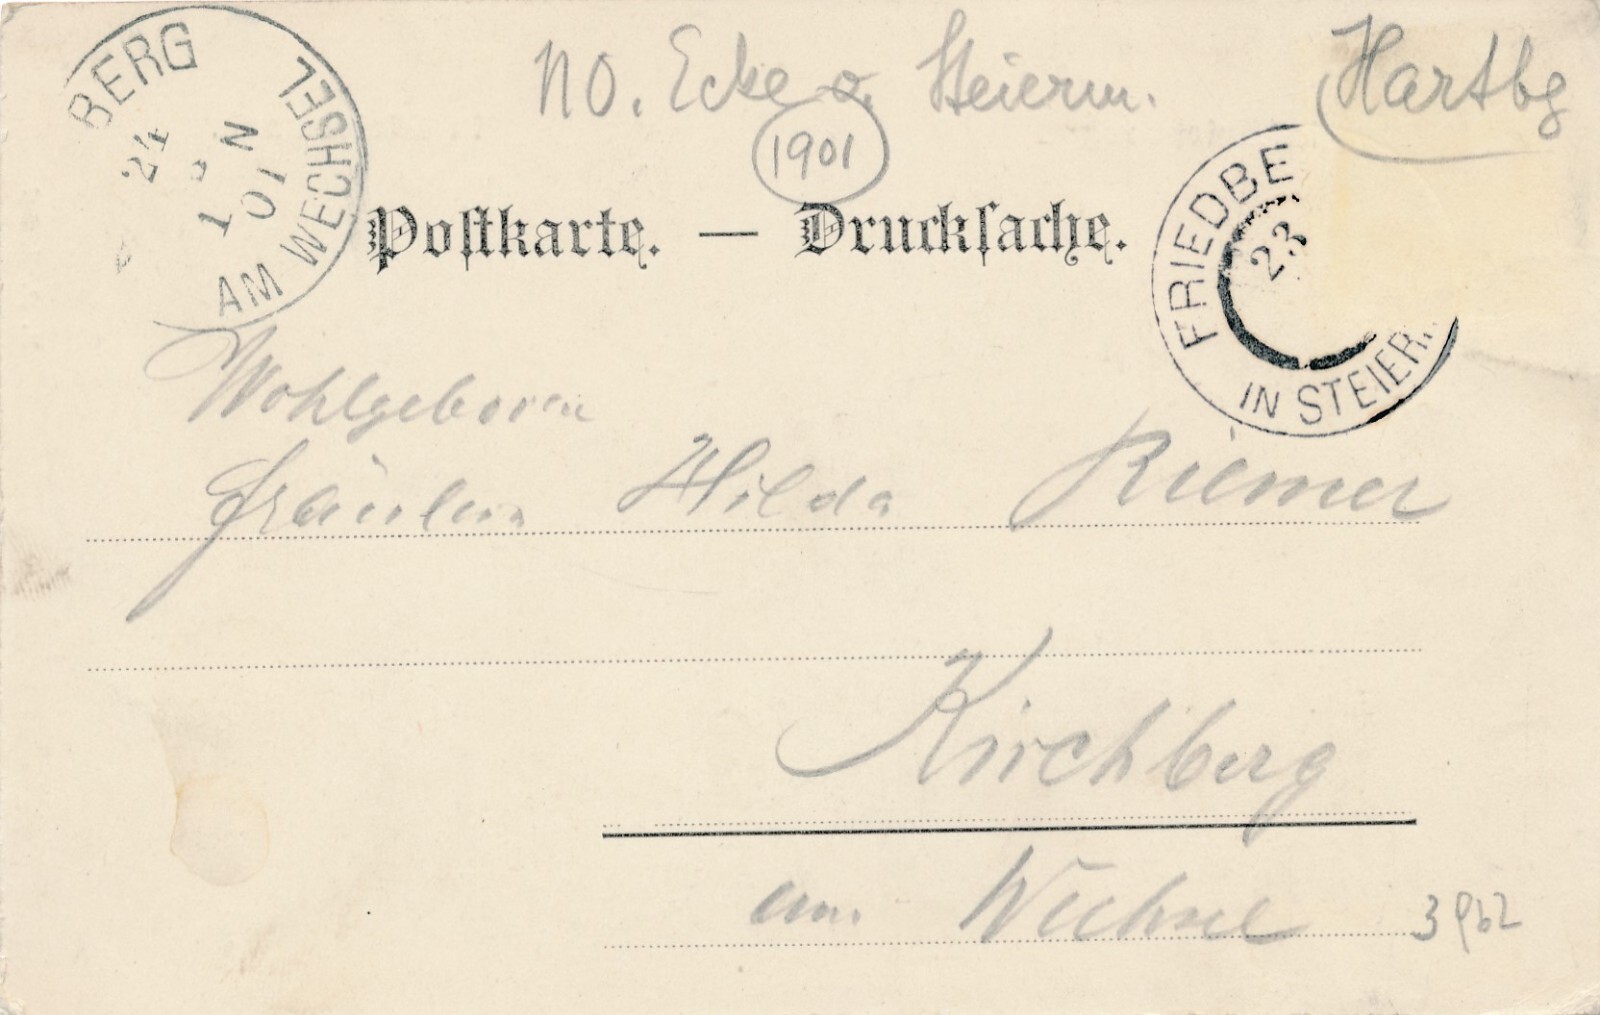 NO. Ecke v. Steierm.
Hartbg
1901
BERG
AM WECHSEL
24
1
N
01
Postkarte. — Drucksache.
FRIEDBE
IN STEIER
23
Wohlgeboren
Fräulein Hilda Riemer
Kirchberg
am Wechsel